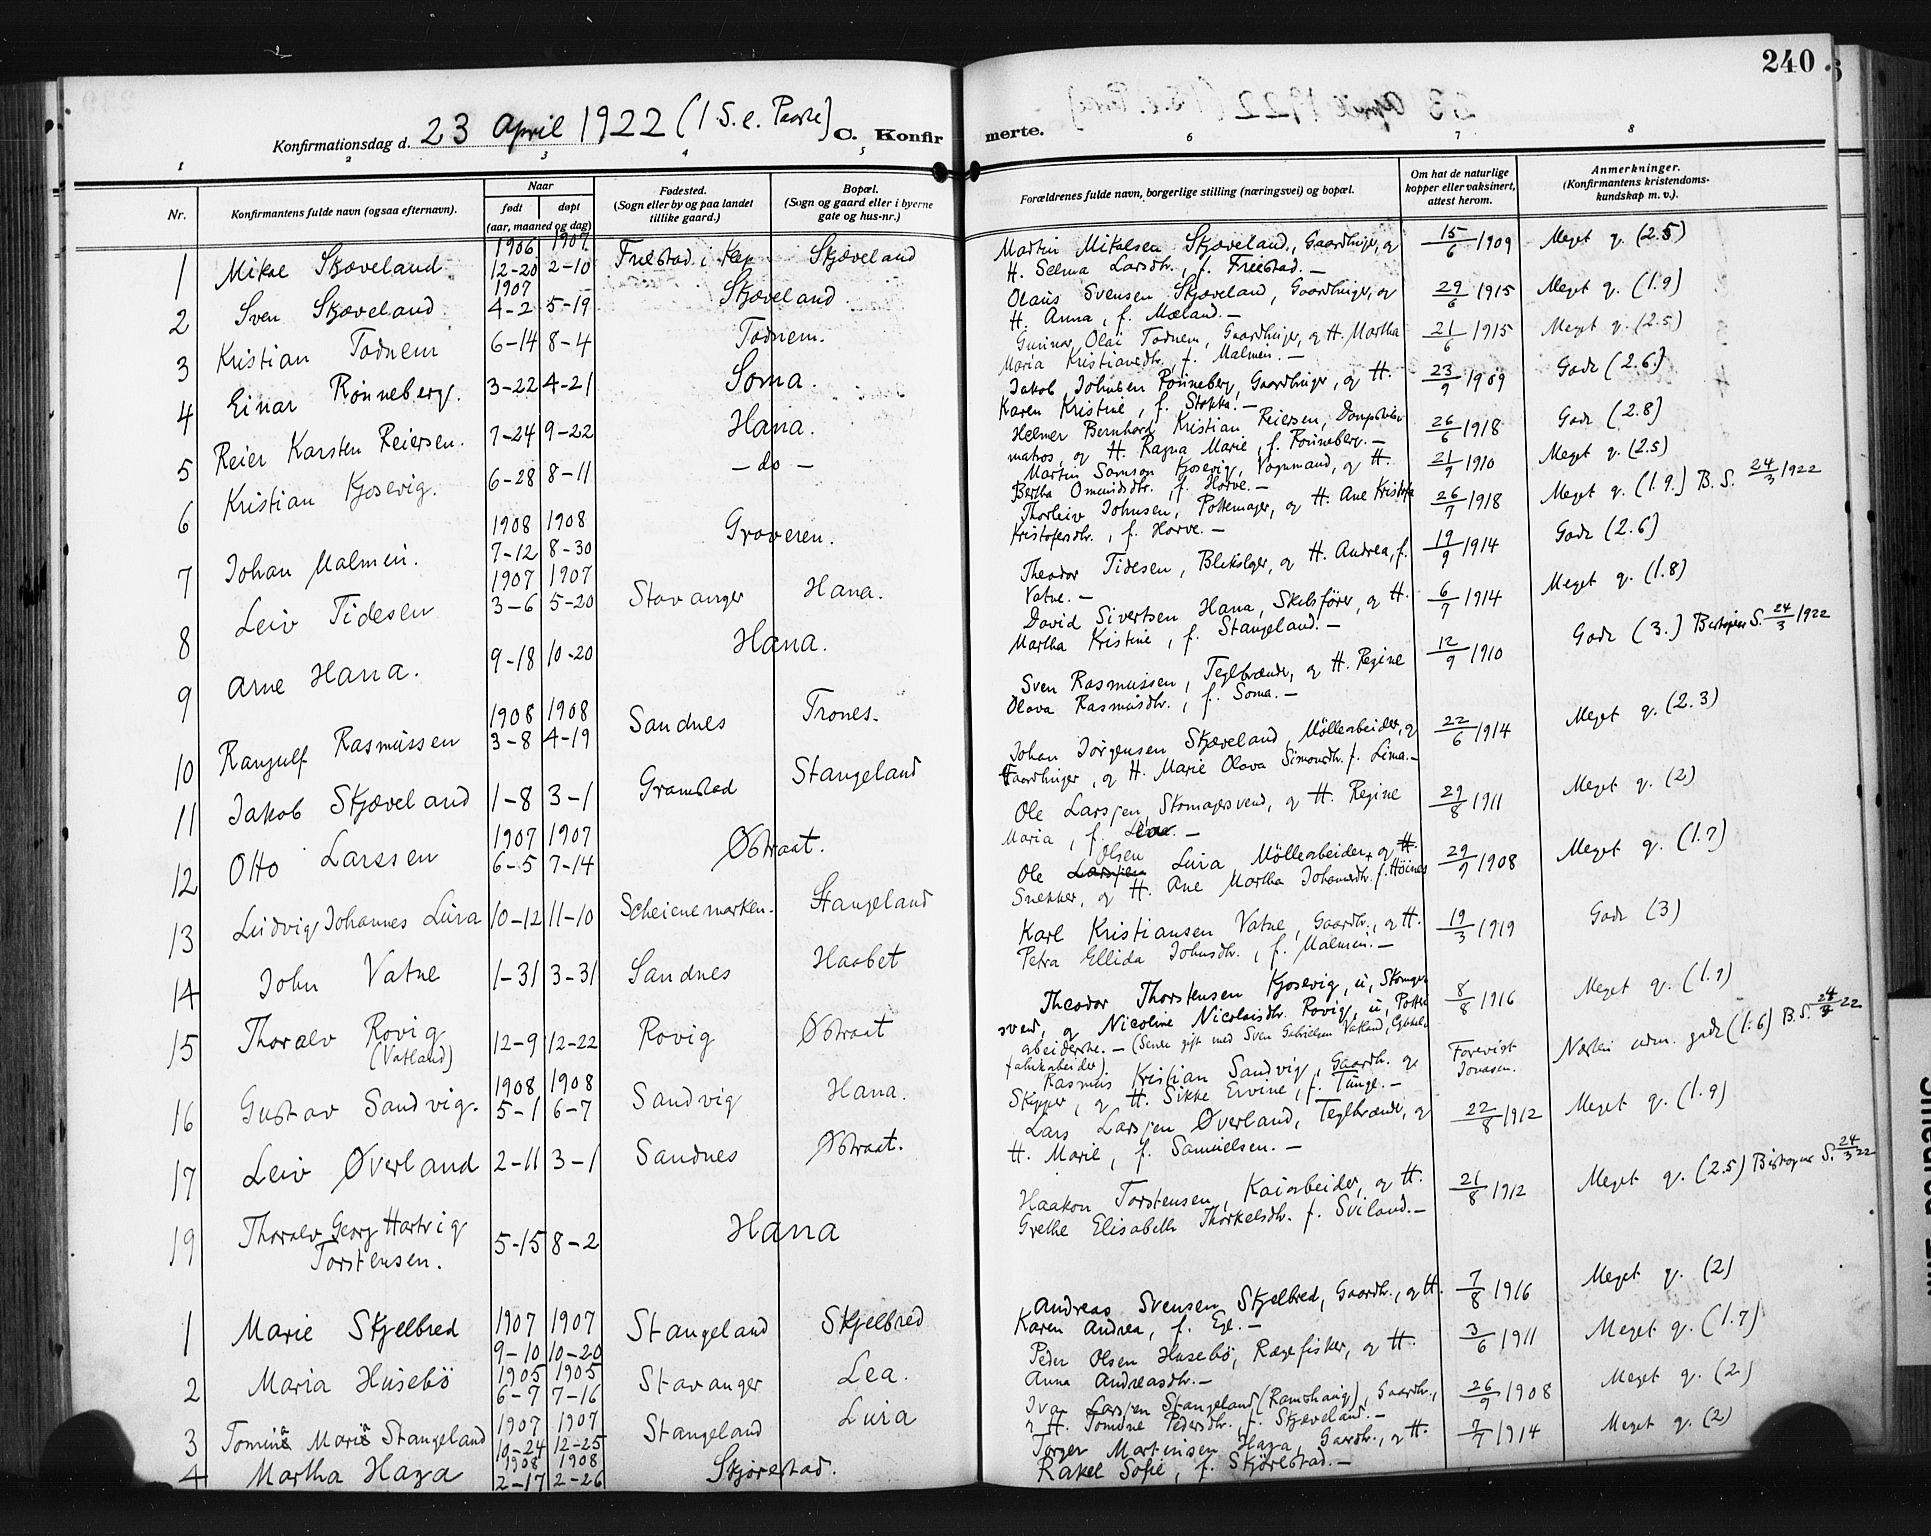 240
Konfirmationsdag d. 23 April 1922 (1 S. e. Paaske) C. Konfirmerte.
1 2 3 4 5 6 7 8
Nr.
Konfirmantens fulde navn (ogsaa efternavn).
Naar
født
døpt
(aar, maaned og dag)
Fødested.
(Sogn eller by og paa landet
tillike gaard.)
Bopæl.
(Sogn og gaard eller i byerne
gate og hus-nr.)
Forældrenes fulde navn, borgerlige stilling (næringsvei) og bopæl.
Om hat de naturlige
kopper eller vaksinert,
attest herom.
Anmerkninger.
(Konfirmantens kristendoms-
kundskap m. v.).
1 Mikal Skjæveland 1906 12-20 1907 2-10 Friestad i Klep Skjæveland
Martin Mikalsen Skjæveland, Gaardbruger, og
H. Selma Larsdtr., f. Friestad. — 15/6 1909 Meget g. (2.5)
2 Sven Skjæveland 1907 4-2 5-19 Skjæveland.
Olaus Svensen Skjæveland, Gaardbruger, og
H. Anna, f. Mæland. — 29/6 1915 Meget g. (1.9)
3 Kristian Todnem 6-14 8-4 Todnem.
Gunnar Olai Todnem, Gaardbruger, og H. Martha
Maria Kristiansdtr. f. Malmen. — 21/6 1915 Meget g. (2.5)
4 Einar Rønneberg. 3-22 4-21 Soma.
Jakob Johnsen Rønneberg, Gaardbruger, og H.
Karen Kristine, f. Stokka. — 23/9 1909 Godt (2.6)
5 Reier Karsten Reiersen. 7-24 9-22 Hana.
Helmer Bernhard Kristian Reiersen,
matros, og H. Ragna Marie, f. Rønneberg. — 26/6 1918 Godt (2.8)
6 Kristian Kjosevig. 6-28 8-11 — do —
Martin Samson Kjosevig, Vognmand, og H.
Bertha Omundsdtr., f. Horve. — 21/9 1910 Meget g. (2.5)
7 Johan Malmin. 1908 7-12 1908 8-30 Graveren.
Thorleiv Johnsen, Pottemager, og H. Ane Kristofa
Kristofersdtr., f. Horve. — 26/9 1918 Meget g. (1.9.) B. S. 24/3 1922
8 Leiv Tidesen 1907 3-6 1907 5-20 Stavanger Hana.
Theodor Tidesen, Blikslager, og H. Andrea, f.
Vatne. — 19/9 1914 Godt (2.6)
9 Arne Hana. 9-18 10-20 Hana.
David Sivertsen Hana, Skibsfører, og H.
Martha Kristine, f. Stangeland. — 6/7 1914 Meget g. (1.8)
10 Rangulf Rasmussen 1908 3-8 1908 4-19 Sandnes Trones.
Sven Rasmussen, Teglbrænder, og H. Regine
Olava Rasmusdtr., f. Soma. — 12/9 1910 Godt (3.) Biskopens S. 24/3 1922
11 Jakob Skjæveland 1-8 3-1 Gramstad Stangeland
Johan Jørgensen Skjæveland, Møllearbeider, og
Gaardbruger, og H. Marie Olava Simonsdtr. f. Lima. — 22/6 1914 Meget g. (2.3)
12 Otto Larssen 1907 6-5 1907 7-14 Østraat.
Ole Larssen, Skomagersvend, og H. Regine
Maria, f. — 29/8 1911 Meget g. (2)
13 Ludvig Johannes Lura 10-12 11-10 Scheienemarken. Stangeland
Ole Olsen Lura Møllearbeider, og H.
Snekker, og H. Ane Martha Johannesdtr. f. Høines 29/9 1908 Meget g. (1.7)
14 John Vatne 1-31 3-31 Sandnes Haabet
Karl Kristiansen Vatne, Gaardbr., og H.
Petra Ellida Johnsdtr., f. Malmin. — 19/3 1919 Godt (3)
15 Thoralv Rovig
(Vatland) 12-9 12-22 Rovig Østraat
Theodor Thorstensen Kjosevig, u, Skomager
svend, og Nicoline Nicolaisdtr. Rovig, u, Potte
abeiderske. — (Senere gift med Sven Gabrielsen Vatland,
fabrikabeider). 8/8 1916 Meget g. (1.9)
16 Gustav Sandvig. 1908 5-1 1908 6-7 Sandvig Hana.
Rasmus Kristian Sandvig, Gaardbr. og
Skipper, og H. Sikke Ervine, f. Tunge. — Forevist
Jonasen. Næsten udm. godt (1.6) B. S. 24/3 22
17 Leiv Øverland 2-11 3-1 Sandnes Østraat.
Lars Larsen Øverland, Teglbrænder, og
H. Marie, f. Samuelsen. — 22/8 1912 Meget g. (1.9)
19 Thoralv Georg Hartvig
Torstensen. 5-15 8-2 Hana
Haakon Torstensen, Kaiarbeider, og H.
Grethe Elisabeth Thorkelsdtr. f. Sviland. — 21/8 1912 Meget g. (2.5) Biskopens S. 24/3 22
1 Marie Skjelbred 1907 9-10 1907 10-20 Stangeland Skjelbred
Andreas Svensen Skjelbred, Gaardbr., og H.
Karen Andrea, f. Ege. — 7/8 1916 Meget g. (2)
2 Maria Husebö 1905 6-7 1905 7-16 Stavanger Lea.
Peder Olsen Husebö, Rægefisker, og H.
Anna Andreasdtr. — 3/6 1911 Meget g. (1.7)
3 Tomina Maria Stangeland 1907 10-24 1907 12-25 Stangeland Lura
Ivar Larsen Stangeland (Ramshaug), Gaardbr.,
og H. Tomine Pedersdtr. f. Skjæveland. — 26/9 1908 Meget g. (2)
4 Martha Haga 1908 2-17 1908 2-26 Skjørestad.
Torger Martinsen Haga, Gaardbr., og H.
Rakel Sofie, f. Skjørestad. — 7/7 1914 Meget g. (2)